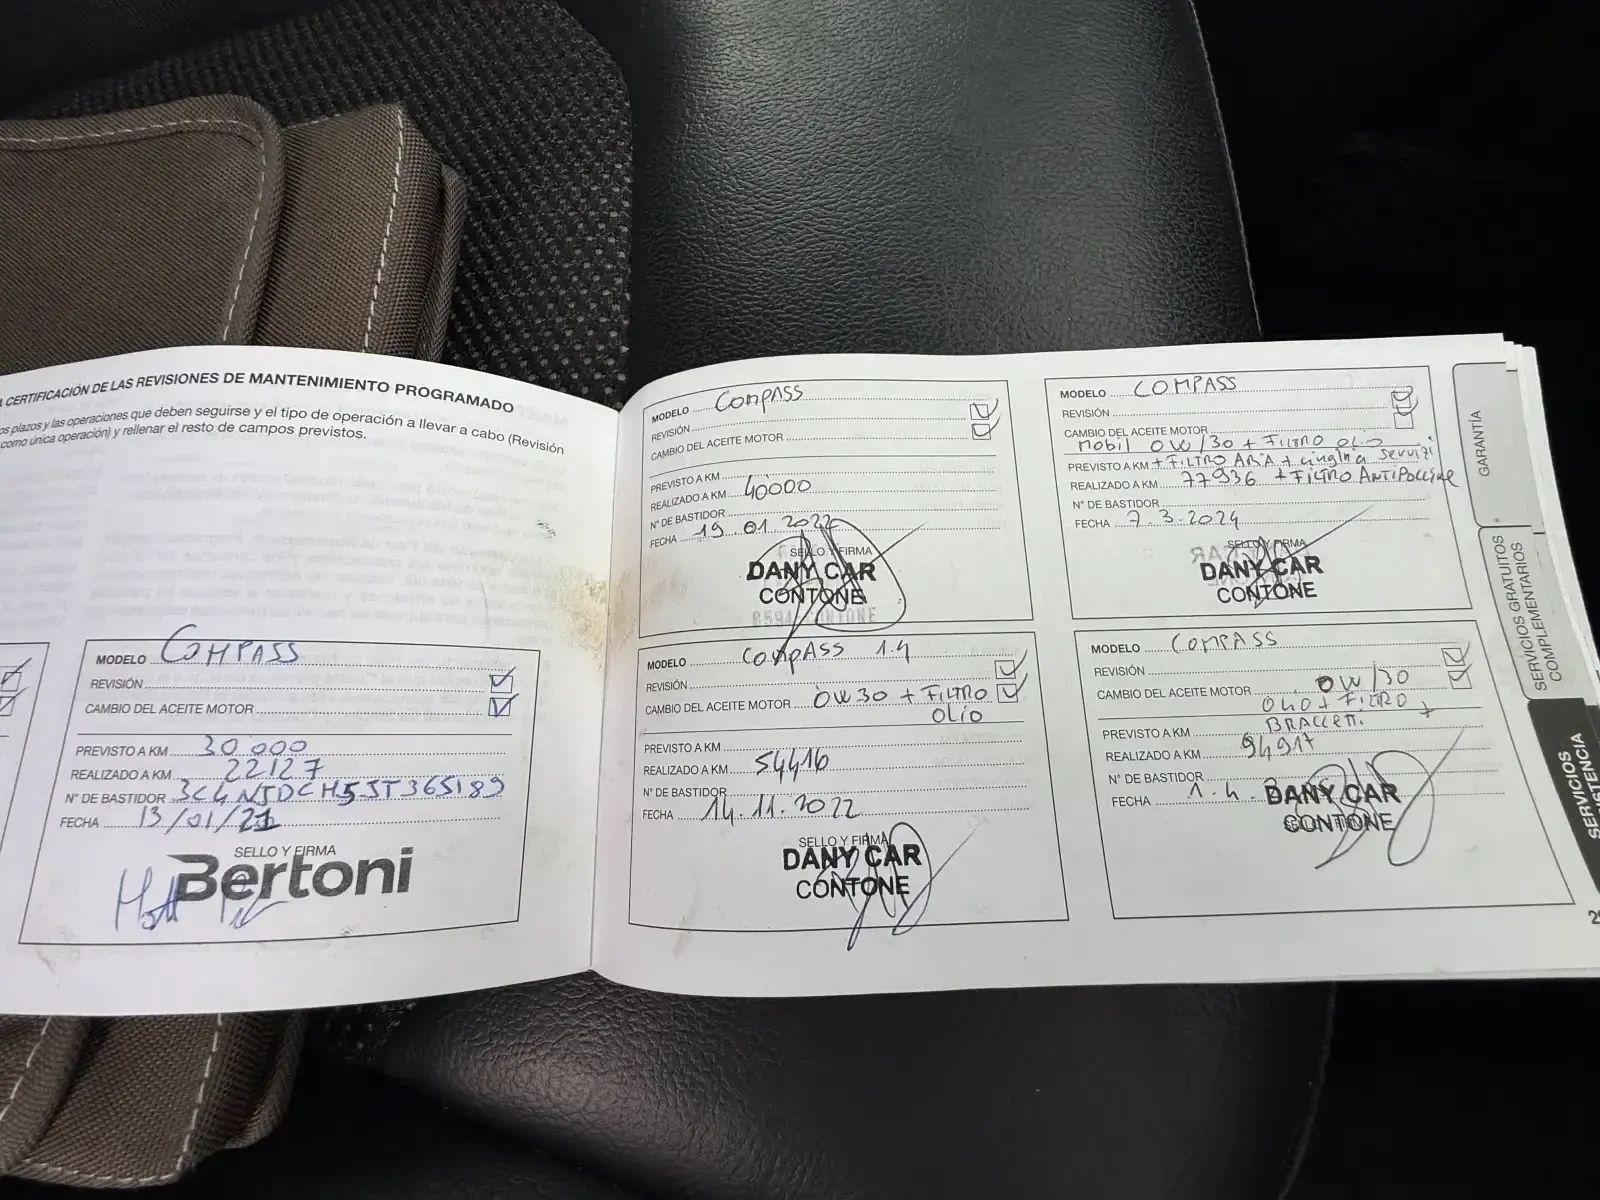 A CERTIFICACIÓN DE LAS REVISIONES DE MANTENIMIENTO PROGRAMADO
os plazos y las operaciones que deben seguirse y el tipo de operación a llevar a cabo (Revisión
como única operación) y rellenar el resto de campos previstos.
MODELO COMPASS
REVISIÓN
CAMBIO DEL ACEITE MOTOR
PREVISTO A KM 30 000
REALIZADO A KM 22127
N° DE BASTIDOR 3C4NJDCH5JT365189
FECHA 13/01/21
SELLO Y FIRMA
Bertoni
MODELO Compass
REVISIÓN
CAMBIO DEL ACEITE MOTOR
PREVISTO A KM
REALIZADO A KM 40000
N° DE BASTIDOR
FECHA 19.01.2022
SELLO Y FIRMA
DANY CAR
CONTONE
MODELO COMPASS 1.4
REVISIÓN
CAMBIO DEL ACEITE MOTOR 0W30 + FILTRO
OLIO
PREVISTO A KM
REALIZADO A KM 54416
N° DE BASTIDOR
FECHA 14.11.2022
SELLO Y FIRMA
DANY CAR
CONTONE
MODELO COMPASS
REVISIÓN
CAMBIO DEL ACEITE MOTOR
Mobil 0W/30 + FILTRO OLIO
PREVISTO A KM + FILTRO ARIA + cinghia Servizi
REALIZADO A KM 77936 + FILTRO ANTIPOLLINE
N° DE BASTIDOR
FECHA 7.3.2024
SELLO Y FIRMA
DANY CAR
CONTONE
MODELO COMPASS
REVISIÓN
CAMBIO DEL ACEITE MOTOR 0W/30
OLIO + FILTRO +
PREVISTO A KM BRACCETTI
REALIZADO A KM 94917
N° DE BASTIDOR
FECHA 1.4.
DANY CAR
CONTONE
GARANTÍA
SERVICIOS GRATUITOS
COMPLEMENTARIOS
SERVICIOS